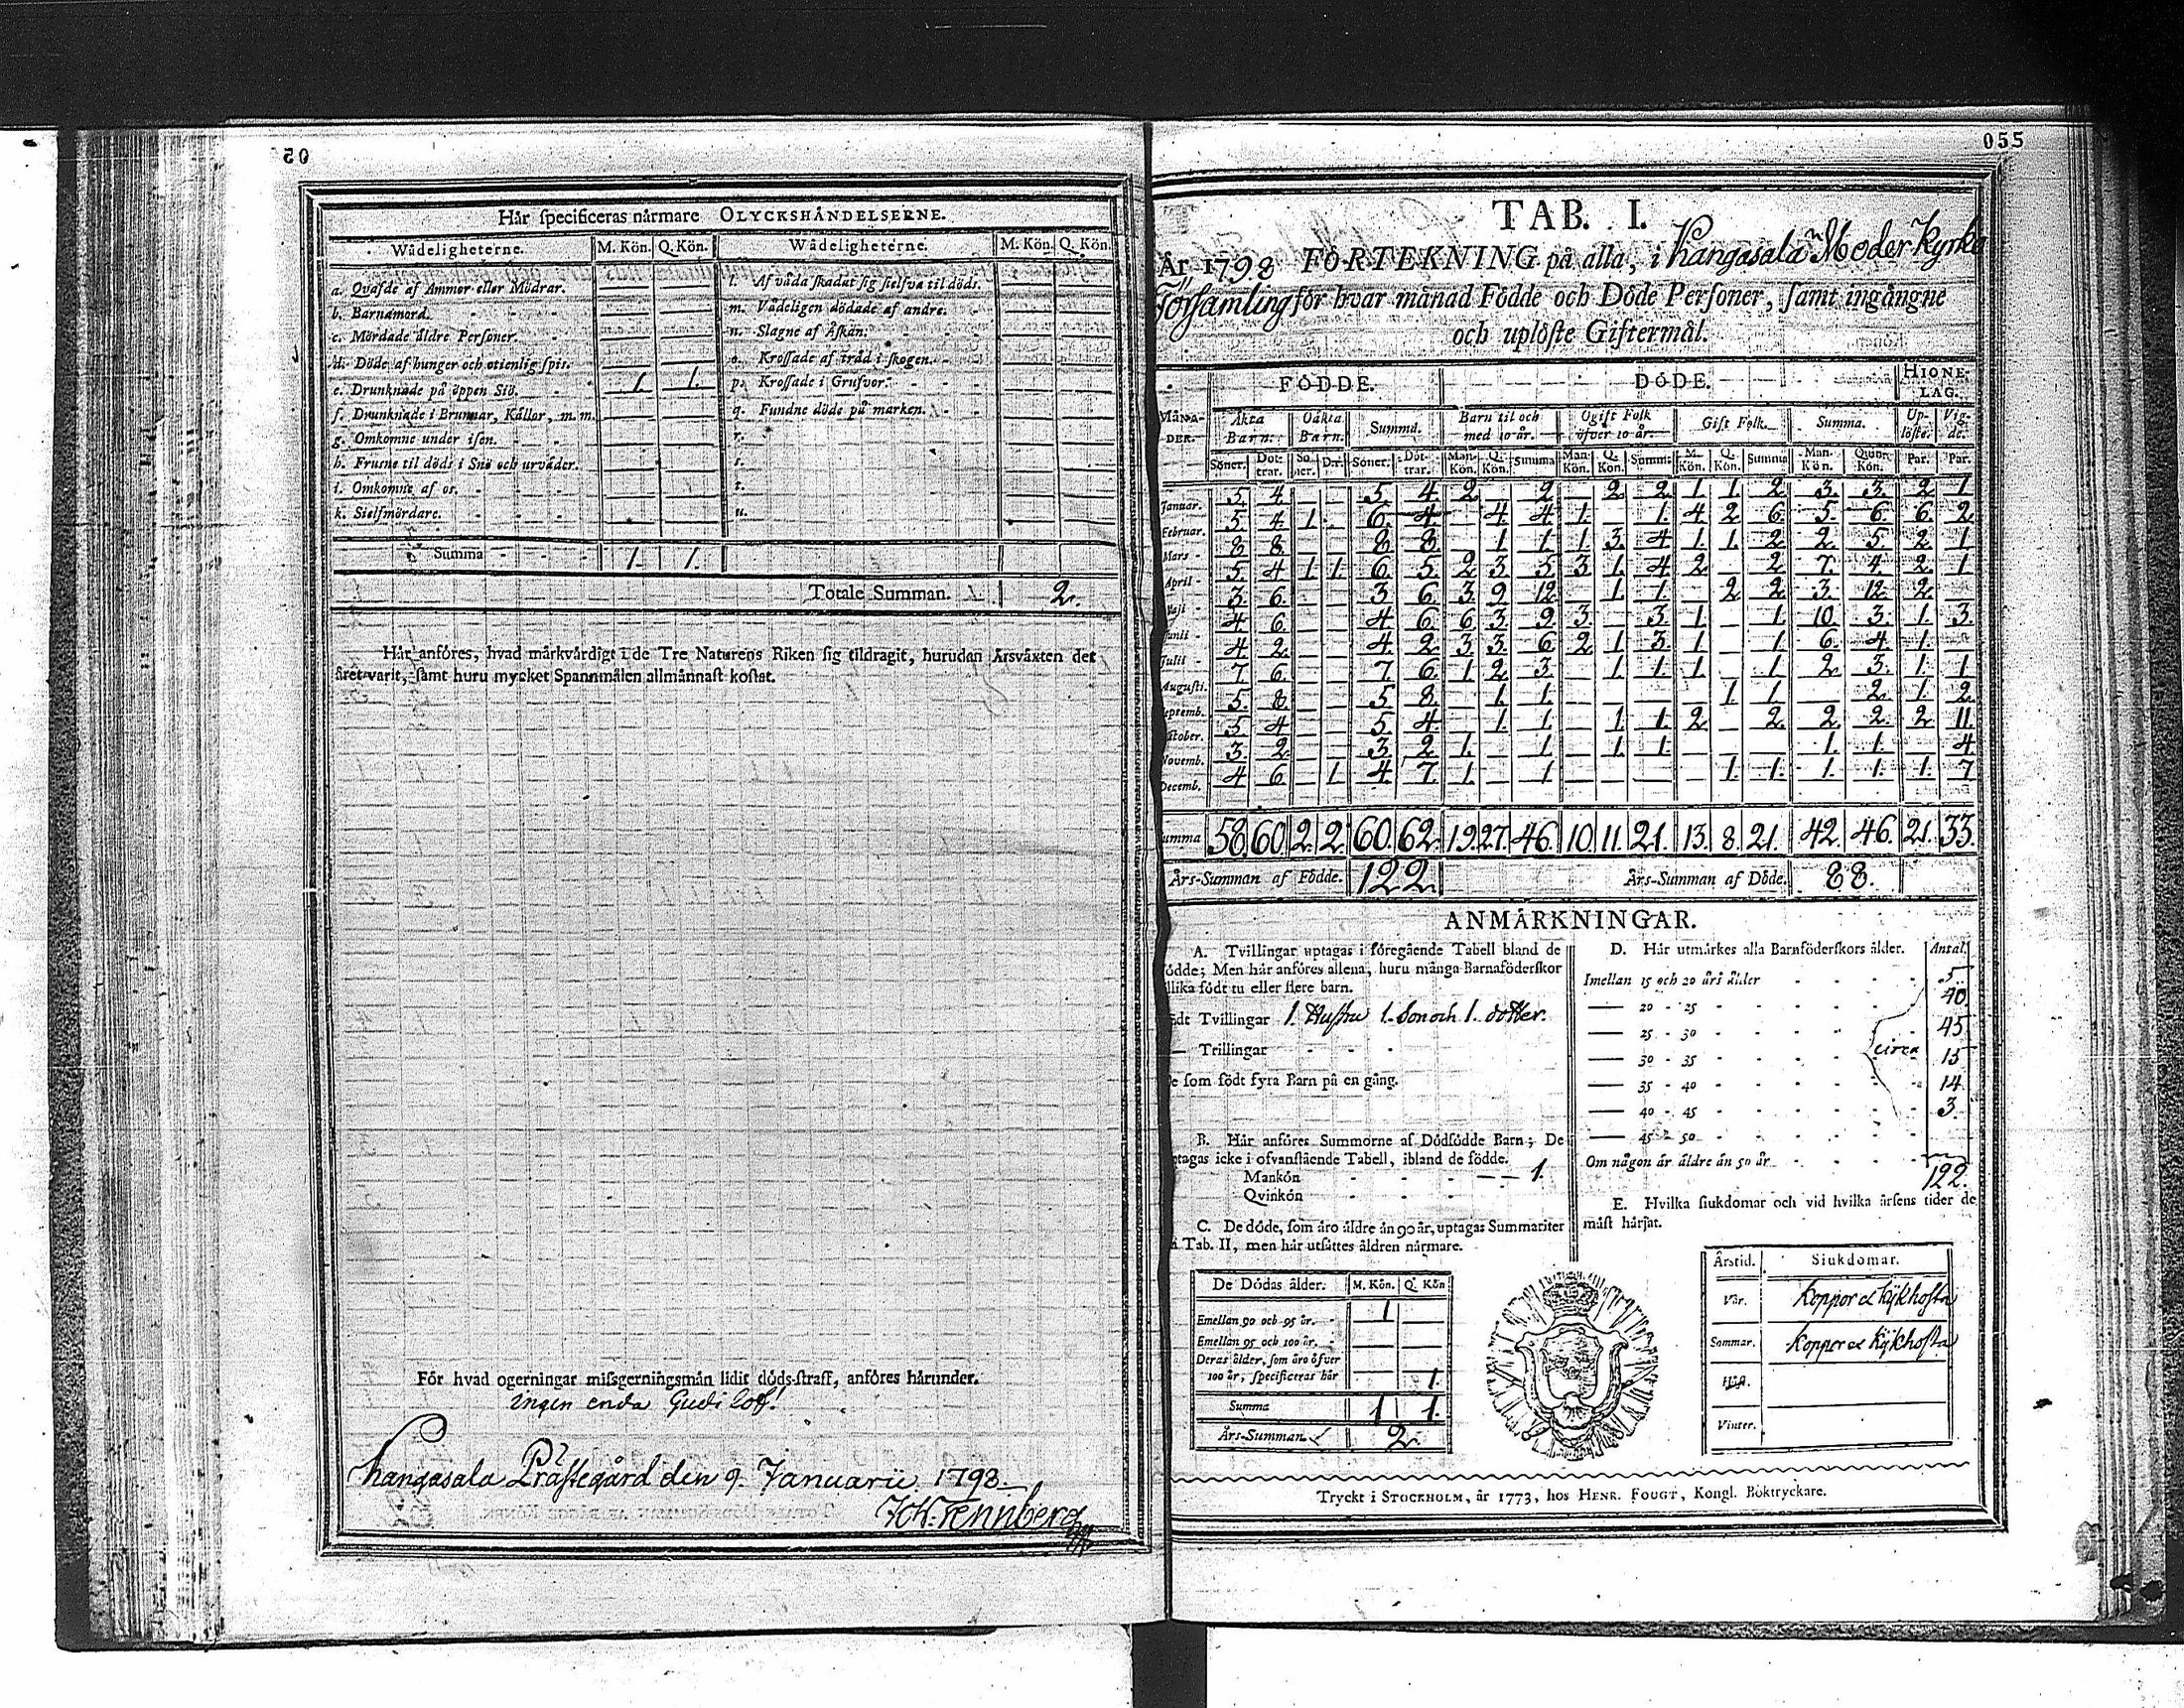 Hår ſpecificeras nårmare OLYCKSHÅNDELSERNE.
Wådeligheterne. M. Kön. Q. Kön. Wådeligheterne. M. Kön. Q. Kön.
a. Qväfde af Ammor eller Mödrar. — — l. Af våda ſkadat ſig ſielfva til döds. — —
b. Barnamord. — — m. Vådeligen dödade af andre. — —
c. Mördade äldre Perſoner. — — n. Slagne af Åſkan. — —
d. Döde af hunger och otienlig ſpis. — — o. Kroſſade af träd i ſkogen. — —
e. Drunknade på öppen Siö. 1. 1. p. Kroſſade i Grufvor. — —
f. Drunknade i Brunnar, Källor, m.m. — — q. Fundne döde på marken. — —
g. Omkomne under iſen. — — r. — —
h. Frusne til döds i Snö och urväder. — — s. — —
i. Omkomne af os. — — t. — —
k. Sielfmördare. — — u. — —
Summa 1. 1.
Totale Summan. 2.
Hår anföres, hvad mårkvårdigt i de Tre Naturens Riken ſig tildragit, hurudan Årsvåxten det
året varit, ſamt huru mycket Spannmålen allmånnaſt koſtat.
För hvad ogerningar miſsgerningsmån lidit döds-ſtraff, anföres hårunder.
Ingen enda Gudi loff!
Kangasala Präſtegård den 9. Januarii 1798.
Tennberg
055
TAB. I.
År 1798 FÖRTEKNING på alla, i Kangasala Moder Kyrko
Församling för hvar månad Födde och Döde Perſoner, ſamt ingångne
och uplöſte Giftermål.
FÖDDE. DÖDE. HIONE-LAG.
MÅNA-DER. Äkta Barn. Oäkta Barn. Summa. Barn til och med 10 år. Ogift Folk öfver 10 år. Gift Folk. Summa. Up-löſte. Vig-de.
Söner. Döt-trar. Sö-ner. D:r. Söner. Döt-trar. Man-Kön. Q. Kön. Summa Man-Kön. Q. Kön. Summa M. Kön. Q. Kön. Summa Man-Kön. Quin-Kön. Par. Par.
Januar. 5. 4. — — 5. 4. 2. — 2. — 2. 2. 1. 1. 2. 3. 3. 2. 1.
Februar. 5. 4. 1. — 6. 4. — 4. 4. 1. — 1. 4. 2. 6. 5. 6. 6. 2.
Mars 8. 8. — — 8. 8. — 1. 1. 1. 3. 4. 1. 1. 2. 2. 5. 2. 1.
April 5. 4. 1. 1. 6. 5. 2. 3. 5. 3. 1. 4. 2. — 2. 7. 4. 2. 1.
Maji 3. 6. — — 3. 6. 3. 9. 12. — 1. 1. — 2. 2. 3. 12. 2. —
Junii 4. 6. — — 4. 6. 6. 3. 9. 3. — 3. 1. — 1. 10. 3. 1. 3.
Julii 4. 2. — — 4. 2. 3. 3. 6. 2. 1. 3. 1. — 1. 6. 4. 1. —
Auguſti. 7. 6. — — 7. 6. 1. 2. 3. — 1. 1. 1. — 1. 2. 3. 1. 1.
Septemb. 5. 8. — — 5. 8. — 1. 1. — — — — 1. 1. — 2. 1. 2.
October. 5. 4. — — 5. 4. — 1. 1. — 1. 1. 2. — 2. 2. 2. 2. 11.
Novemb. 3. 2. — — 3. 2. 1. — 1. — 1. 1. — — — 1. 1. — 4.
Decemb. 4. 6. — 1. 4. 7. 1. — 1. — — — — 1. 1. 1. 1. 1. 7.
Summa 58. 60. 2. 2. 60. 62. 19. 27. 46. 10. 11. 21. 13. 8. 21. 42. 46. 21. 33.
Års-Summan af Födde. 122. Års-Summan af Döde. 88.
ANMÅRKNINGAR.
A. Tvillingar uptagas i föregående Tabell bland de
födde; Men hår anföres allena, huru många Barnaföderſkor
tillika födt tu eller flere barn.
Födt Tvillingar 1. Huſtru 1. Son och 1. dotter.
— Trillingar
De ſom födt fyra Barn på en gång.
B. Hår anföres Summorne af Dödfödde Barn; De
uptagas icke i ofvanſtående Tabell, ibland de födde.
Mankön — — 1.
Qvinkön
C. De döde, ſom åro åldre ån 90 år, uptagas Summariter
i Tab. II, men hår utſåttes åldren nårmare.
De Dödas ålder. M. Kön. Q. Kön
Emellan 90 och 95 år. 1 —
Emellan 95 och 100 år. — —
Deras ålder, ſom äro öfver
100 år, ſpecificeras här — 1.
Summa 1 1.
Års-Summan 2.
D. Hår utmårkes alla Barnföderſkors ålder. Antal.
Imellan 15 och 20 års ålder 5
— 20 - 25 40
— 25 - 30 45
— 30 - 35 circa 15
— 35 - 40 14
— 40 - 45 3.
— 45 - 50
Om någon är äldre än 50 år
122.
E. Hvilka ſiukdomar och vid hvilka årſens tider de
måſt hårjat.
Årstid. Siukdomar.
Vår. Koppor et kijkhoſta
Sommar. Koppor et kijkhoſta
Höſt.
Vinter.
Tryckt i STOCKHOLM, år 1773, hos HENR. FOUGT, Kongl. Boktryckare.